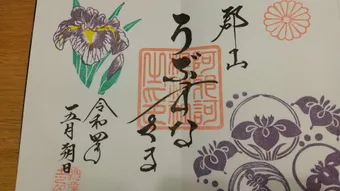 郡山
うぶすな
さま
令和四年
五月朔日